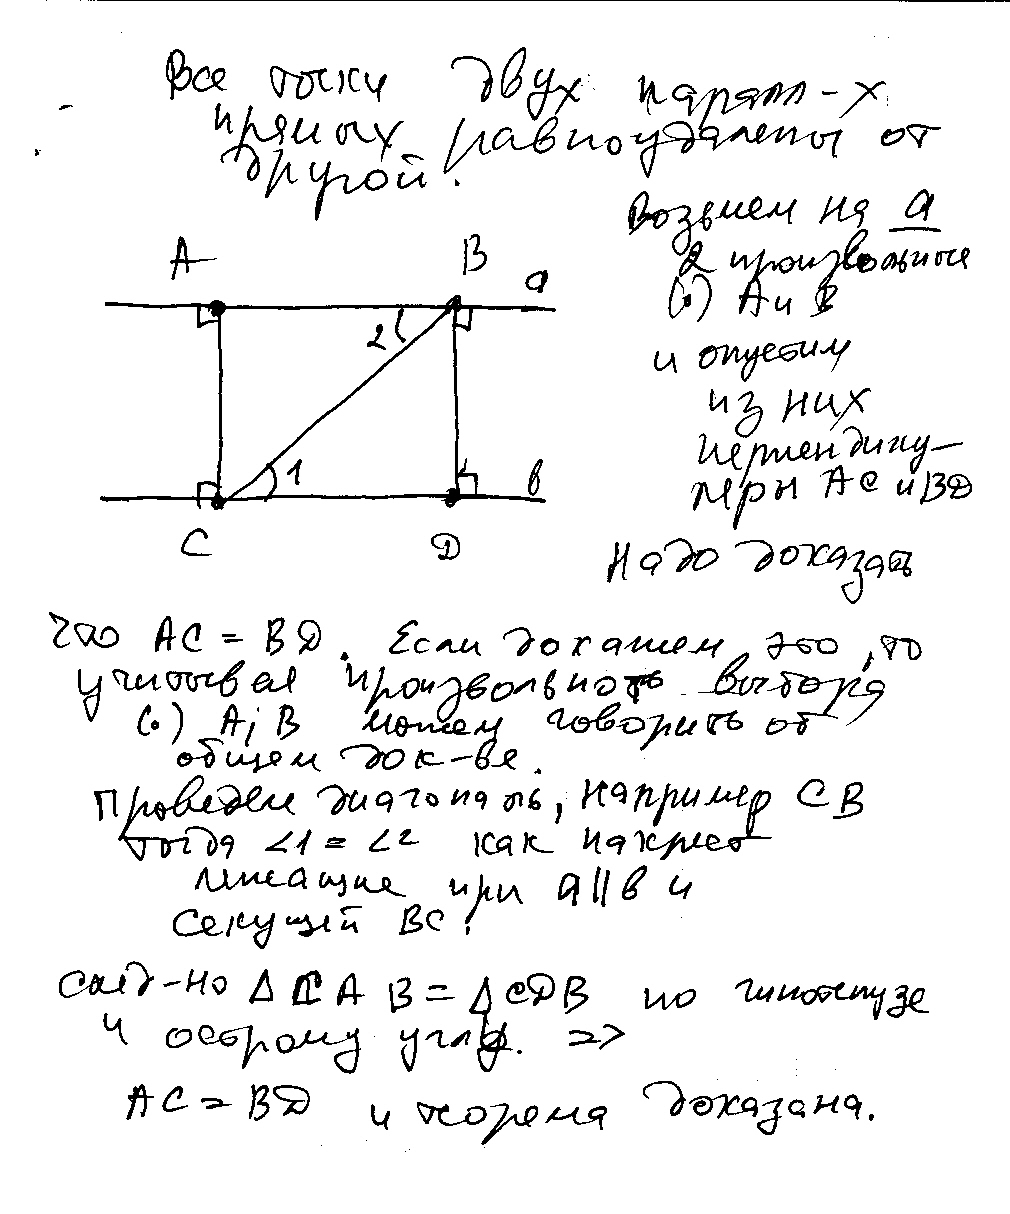 Все точки двух паралл-х
прямых равноудалены от
другой.
Возьмем на a
2 произвольные
(•) A и B
и опустим
из них
перпендику-
ляры AC и BD
Надо доказать
A
B
a
2
1
в
C
D
что AC = BD. Если докажем это, то
учитывая произвольность выбора
(•) A; B можем говорить об
общем док-ве.
Проведем диагональ, например CB
тогда ∠1 = ∠2 как накрест
лежащие при a || в и
секущей BC.
След-но Δ CAB = Δ CDB по гипотенузе
и острому углу. =>
AC = BD и теорема доказана.